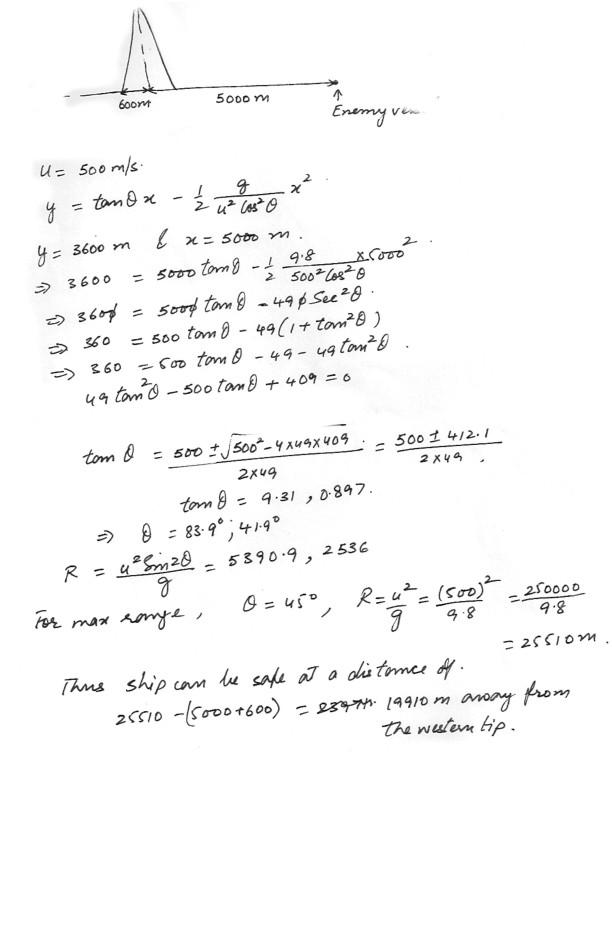 600m 5000 m
Enemy
u = 500 m/s.
y = tanθ x - 1/2 g/(u² cos²θ) x².
y = 3600 m & x = 5000 m.
⇒ 3600 = 5000 tanθ - 1/2 9.8/(500² cos²θ) × 5000².
⇒ 3600 = 5000 tanθ - 490 sec²θ.
⇒ 360 = 500 tanθ - 49(1 + tan²θ)
⇒ 360 = 500 tanθ - 49 - 49 tan²θ.
49 tan²θ - 500 tanθ + 409 = 0
tan θ = (500 ± √(500² - 4×49×409))/(2×49) = (500 ± 412.1)/(2×49).
tanθ = 9.31, 0.897.
⇒ θ = 83.9°; 41.9°
R = u² Sin2θ/g = 5390.9, 2536
For max range, θ = 45°, R = u²/g = (500)²/9.8 = 250000/9.8
= 25510 m.
Thus ship can be safe at a distance of.
25510 - (5000+600) = 19910 m away from
the western tip.